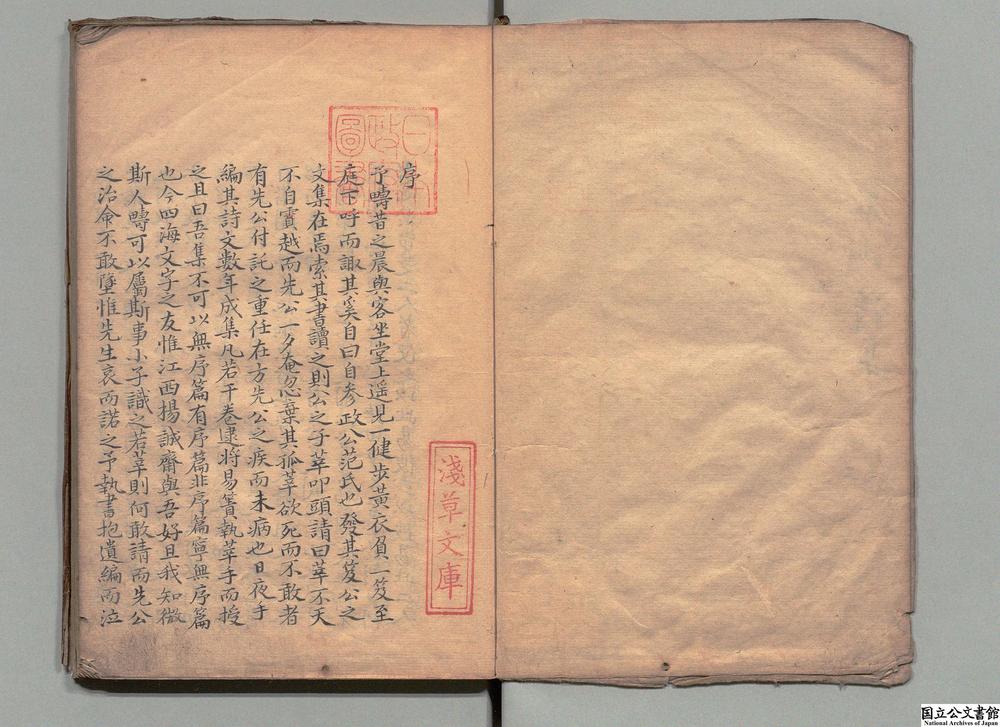 序
予疇昔之晨與客坐堂上遥見一健步黃衣負一笈至
庭下呼而諏其奚自曰自參政公范氏也發其笈公之
文集在焉索其書讀之則公之子莘叩頭請曰莘不天
不自霣越而先公一夕奄忽棄其孤莘欲死而不敢者
有先公付託之重任在方先公之疾而未病也日夜手
編其詩文數年成集凡若干卷逮將易簀執莘手而授
之且曰吾集不可以無序篇有序篇非序篇寧無序篇
也今四海文字之友惟江西揚誠齋與吾好且我知微
斯人疇可以屬斯事小子識之若莘則何敢請而先公
之治命不敢墜惟先生哀而諾之予執書抱遺編而泣
日本
政府
圖書
淺草文庫
国立公文書館
National Archives of Japan